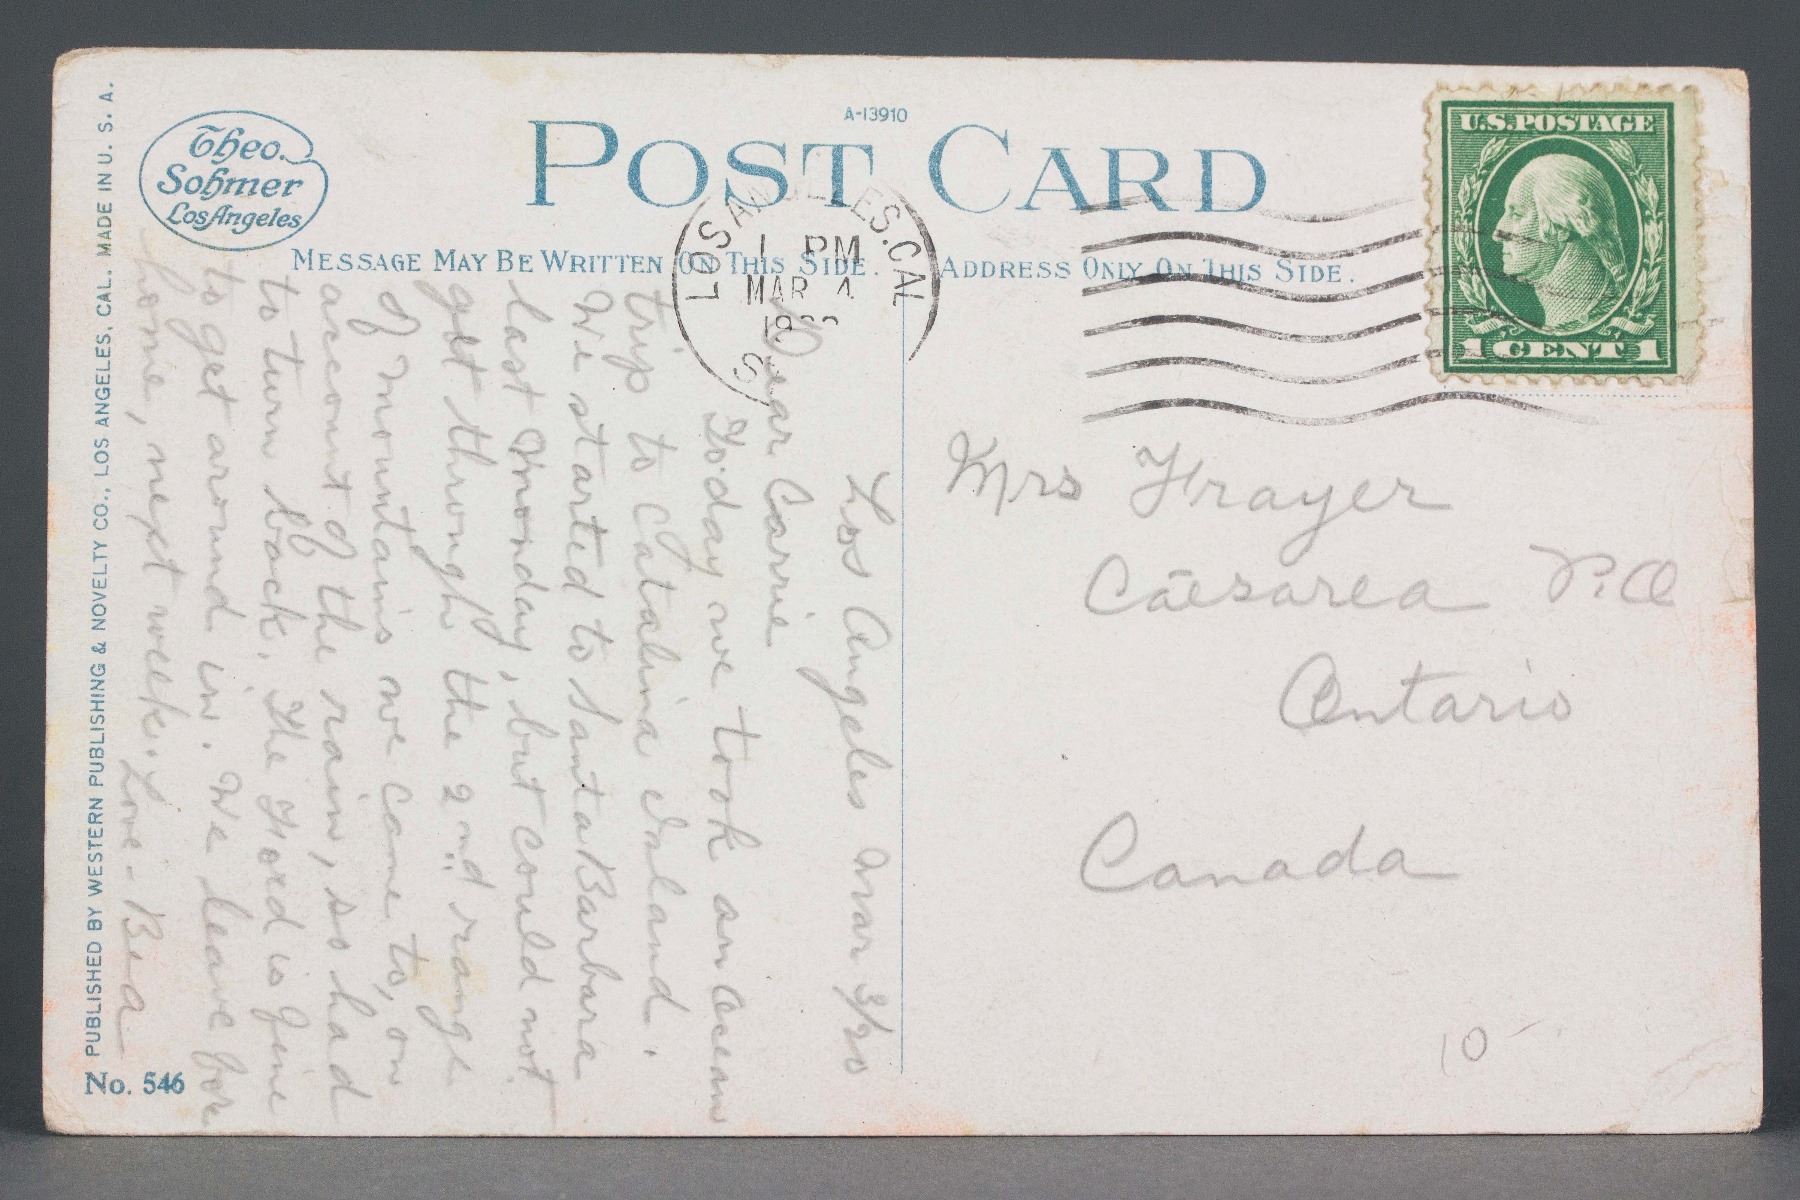 A-13910
POST CARD
Theo.
Sohmer
Los Angeles
MESSAGE MAY BE WRITTEN ON THIS SIDE.
ADDRESS ONLY ON THIS SIDE.
LOS ANGELES. CAL
1 PM
MAR 4
U.S. POSTAGE
1 CENT 1
Los Angeles Mar 3/20
Dear Carrie
To-day we took an Ocean
trip to Catalina Island.
We started to Santa Barbara
last Monday, but could not
get through the 2nd range
of mountains we came to, on
account of the rain, so had
to turn back. The Ford is fine
to get around in. We leave for
home, next week. Love - Bea
Mrs Frayer
Caesarea P.O
Ontario
Canada
10
PUBLISHED BY WESTERN PUBLISHING & NOVELTY CO., LOS ANGELES, CAL. MADE IN U. S. A.
No. 546